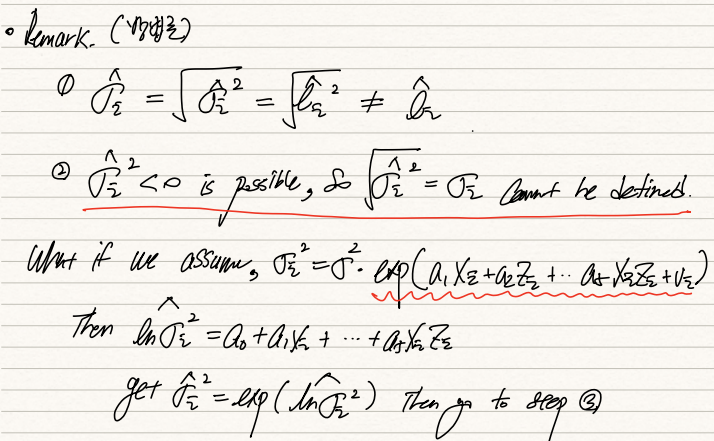 • Remark. (방법론)
① σ̂ᵢ = √σ̂ᵢ² = √êᵢ² ≠ êᵢ
② σ̂ᵢ² < 0 is possible, so √σ̂ᵢ² = σᵢ cannot be defined.
What if we assume, σᵢ² = σ² · exp(a₁Xᵢ + a₂Zᵢ + ·· a₅XᵢZᵢ + vᵢ)
Then ln σ̂ᵢ² = a₀ + a₁Xᵢ + ··· + a₅XᵢZᵢ
get σ̂ᵢ² = exp(ln σ̂ᵢ²) Then go to step ③